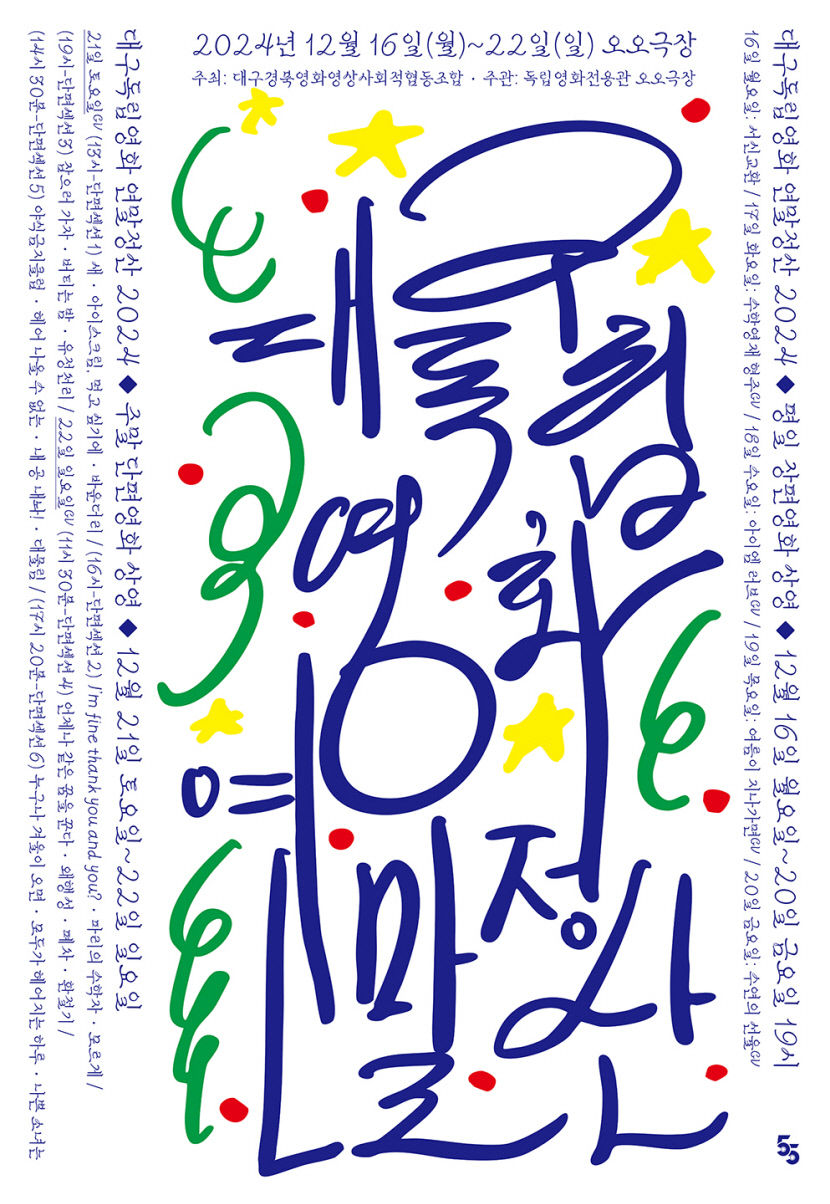 2024년 12월 16일(월)~22일(일) 오오극장
주최: 대구경북영화영상사회적협동조합 · 주관: 독립영화전용관 오오극장
대구
독립
영화
연말정산
대구독립영화 연말정산 2024 ◆ 평일 장편영화 상영 ◆ 12월 16일 월요일~20일 금요일 19시
16일 월요일: 서신교환 / 17일 화요일: 수학영재 형주GV / 18일 수요일: 아이엠 러브GV / 19일 목요일: 여름이 지나가면GV / 20일 금요일: 수연의 선율GV
대구독립영화 연말정산 2024 ◆ 주말 단편영화 상영 ◆ 12월 21일 토요일~22일 일요일
21일 토요일GV (13시-단편섹션 1) 새 · 아이스크림 먹고 싶기에 · 바운더리 / (16시-단편섹션 2) I'm fine thank you and you? · 마리의 수학자 · 모르게 /
(19시-단편섹션 3) 잠으러 가자 · 버티는 밤 · 유정천리 / 22일 일요일GV (11시 30분-단편섹션 4) 언제나 같은 꿈을 꾼다 · 왜행성 · 폐차 · 환절기 /
(14시 30분-단편섹션 5) 야식금지클럽 · 헤어 나올 수 없는 · 내 공 내놔! · 대물림 / (17시 20분-단편섹션 6) 누구나 겨울이 오면 · 모두가 헤어지는 하루 · 나쁜 소녀는
55